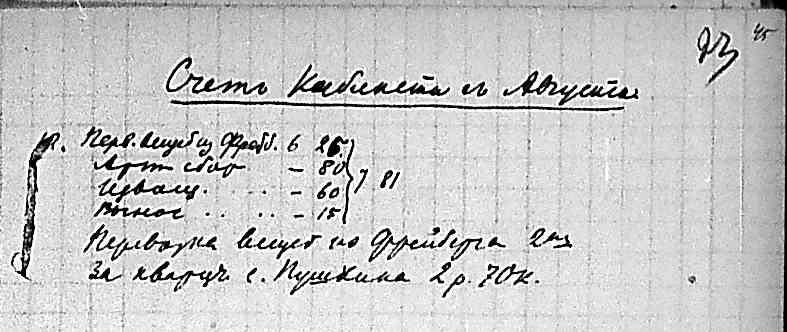 23 45
Счетъ Кабинета съ Августа
Перв. вещей из Фрейб. 6 26
Арт сбор — 80 } 7 81
Извощ. . . . — 60
Вынос . . . . — 15
Перевозка вещей из Фрейберга 2
За кварц с. Пушкина 2 р. 70 к.